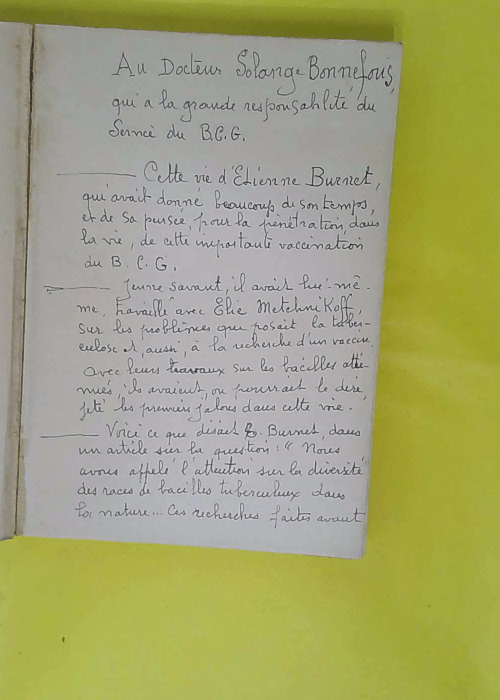 Au Docteur Solange Bonnefous,
qui a la grande responsabilité du
Service du B.C.G.
Cette vie d'Etienne Burnet,
qui avait donné beaucoup de son temps,
et de sa pensée, pour la pénétration, dans
la vie, de cette importante vaccination
du B.C.G.
Jeune savant, il avait lui-mê-
me, travaillé avec Elie Metchnikoff,
sur les problèmes que posait la tuber-
culose et, aussi, à la recherche d'un vaccin.
Avec leurs travaux sur les bacilles atté-
nués, ils avaient, on pourrait le dire,
jeté les premiers jalons dans cette voie.
Voici ce que disait E. Burnet, dans
un article sur la question : "Nous
avons appelé l'attention sur la diversité
des races de bacilles tuberculeux dans
la nature... Ces recherches faites avant